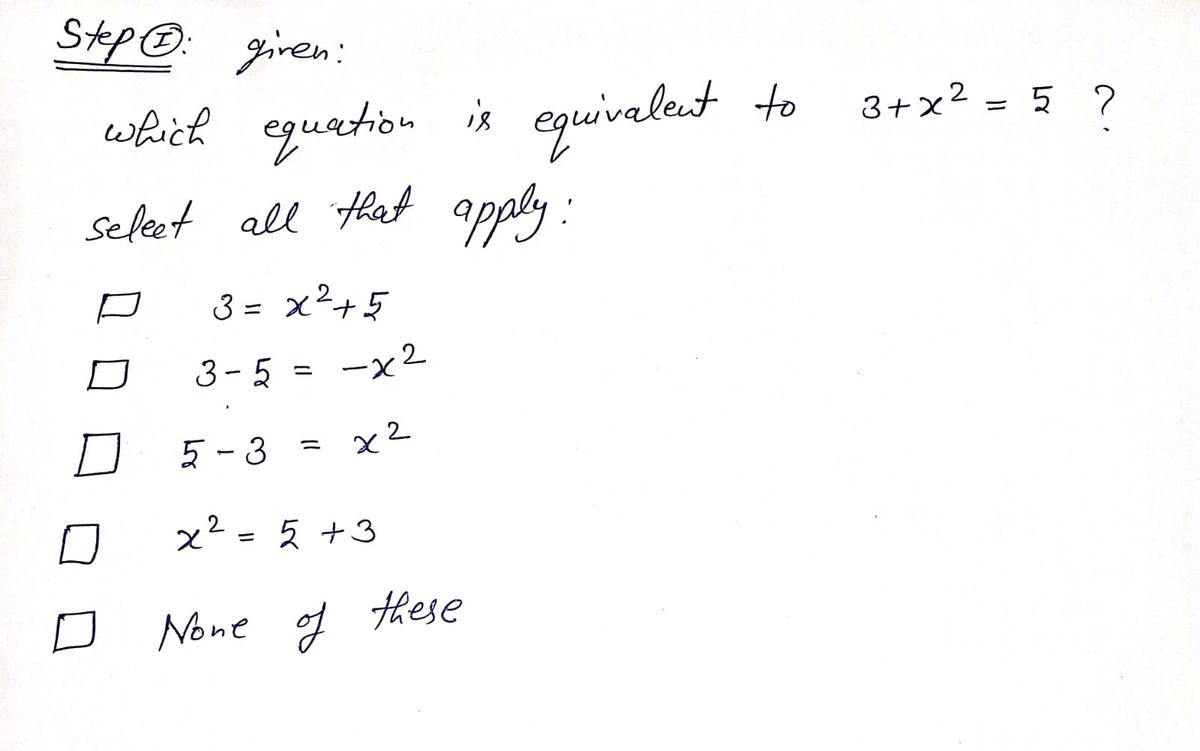 Step ①: given:
which equation is equivalent to 3+x² = 5 ?
select all that apply:
□ 3 = x²+5
□ 3-5 = -x²
□ 5-3 = x²
□ x² = 5 +3
□ None of these